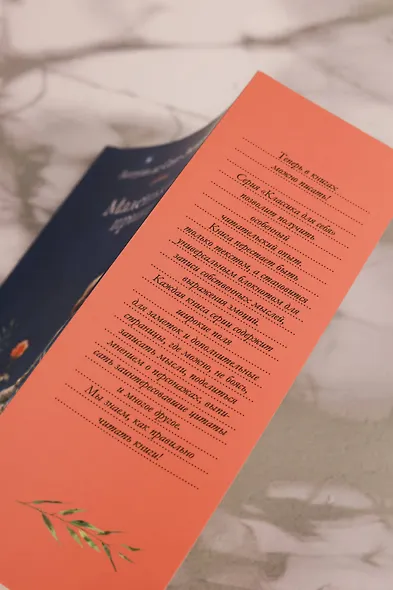 Антуан де Сент-
Маленький
принц
Теперь в книгах
можно писать!
Серия «Классика для себя»
позволит получить
особенный
читательский опыт.
Книга перестает быть
только текстом, а становится
универсальным блокнотом для
записи собственных мыслей,
выражения эмоций.
Каждая книга серии содержит
широкие поля
для заметок и дополнительные
страницы, где можно, не боясь,
записать мысли, поделиться
мнением о персонажах, выпи-
сать заинтересовавшие цитаты
и многое другое.
Мы знаем, как правильно
читать книги!